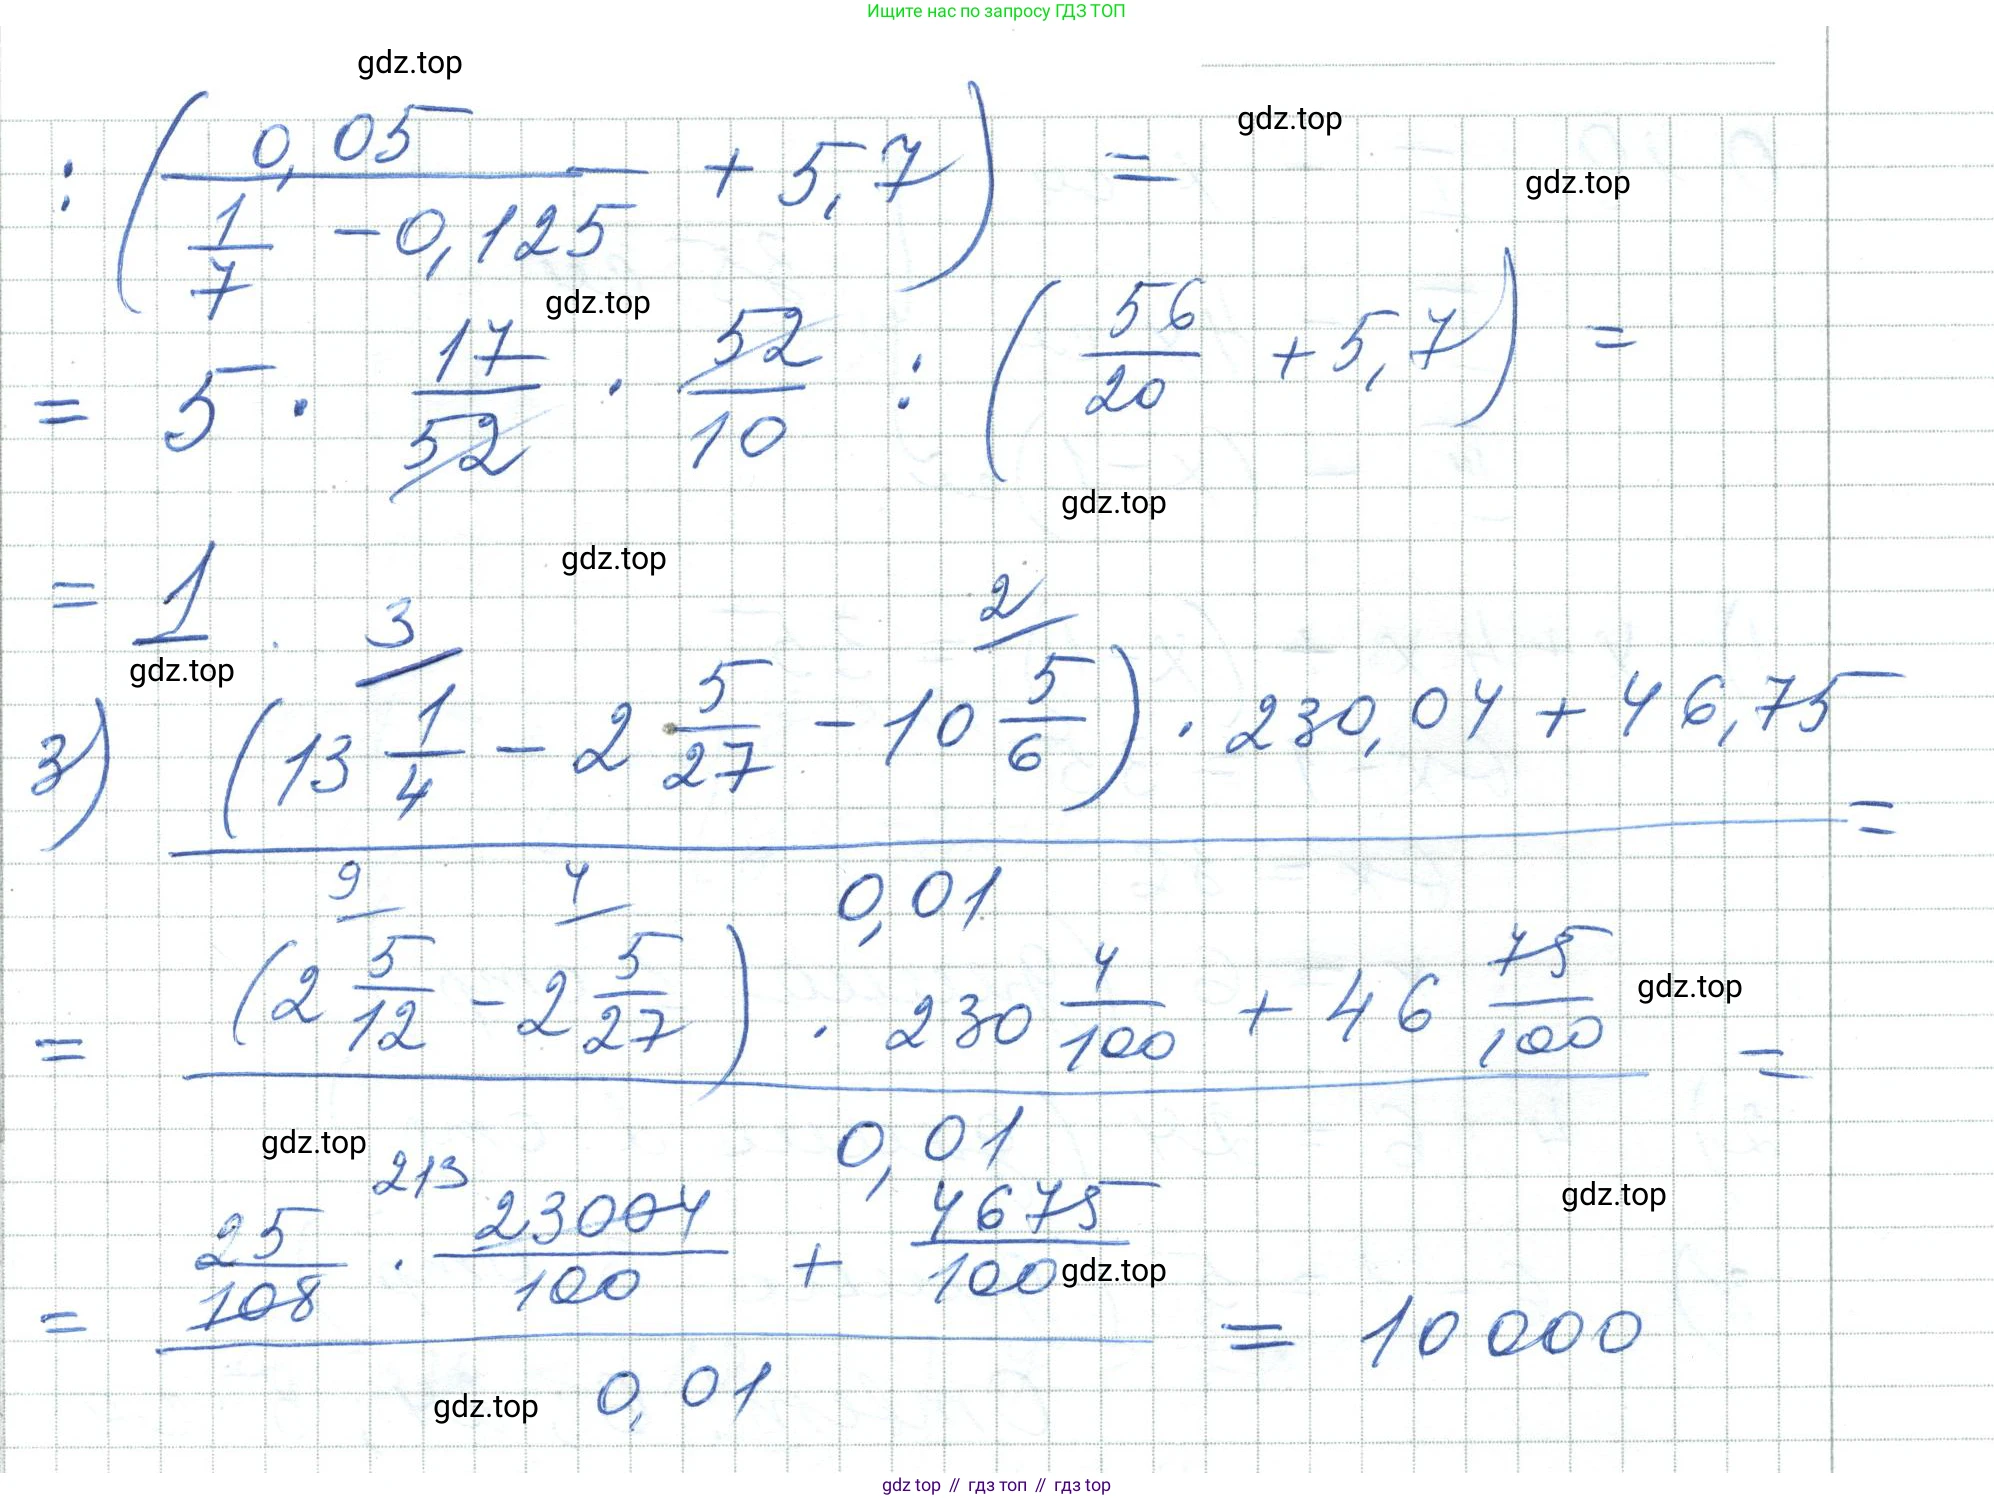 Ищите нас по запросу ГДЗ ТОП
gdz.top
gdz.top
gdz.top
: (0,05 / (1/7 - 0,125) + 5,7) =
gdz.top
= 5 · 17/52 · 52/10 : (56/20 + 5,7) =
gdz.top
gdz.top
= 1
gdz.top
3 2
3) ((13 1/4 - 2 5/27 - 10 5/6) · 230,04 + 46,75) / 0,01 =
9 4
= ((2 5/12 - 2 5/27) · 230 4/100 + 46 75/100) / 0,01 =
gdz.top
gdz.top
gdz.top
213
= (25/108 · 23004/100 + 4675/100) / 0,01 = 10000
gdz.top
gdz.top
gdz top // гдз топ // гдз top